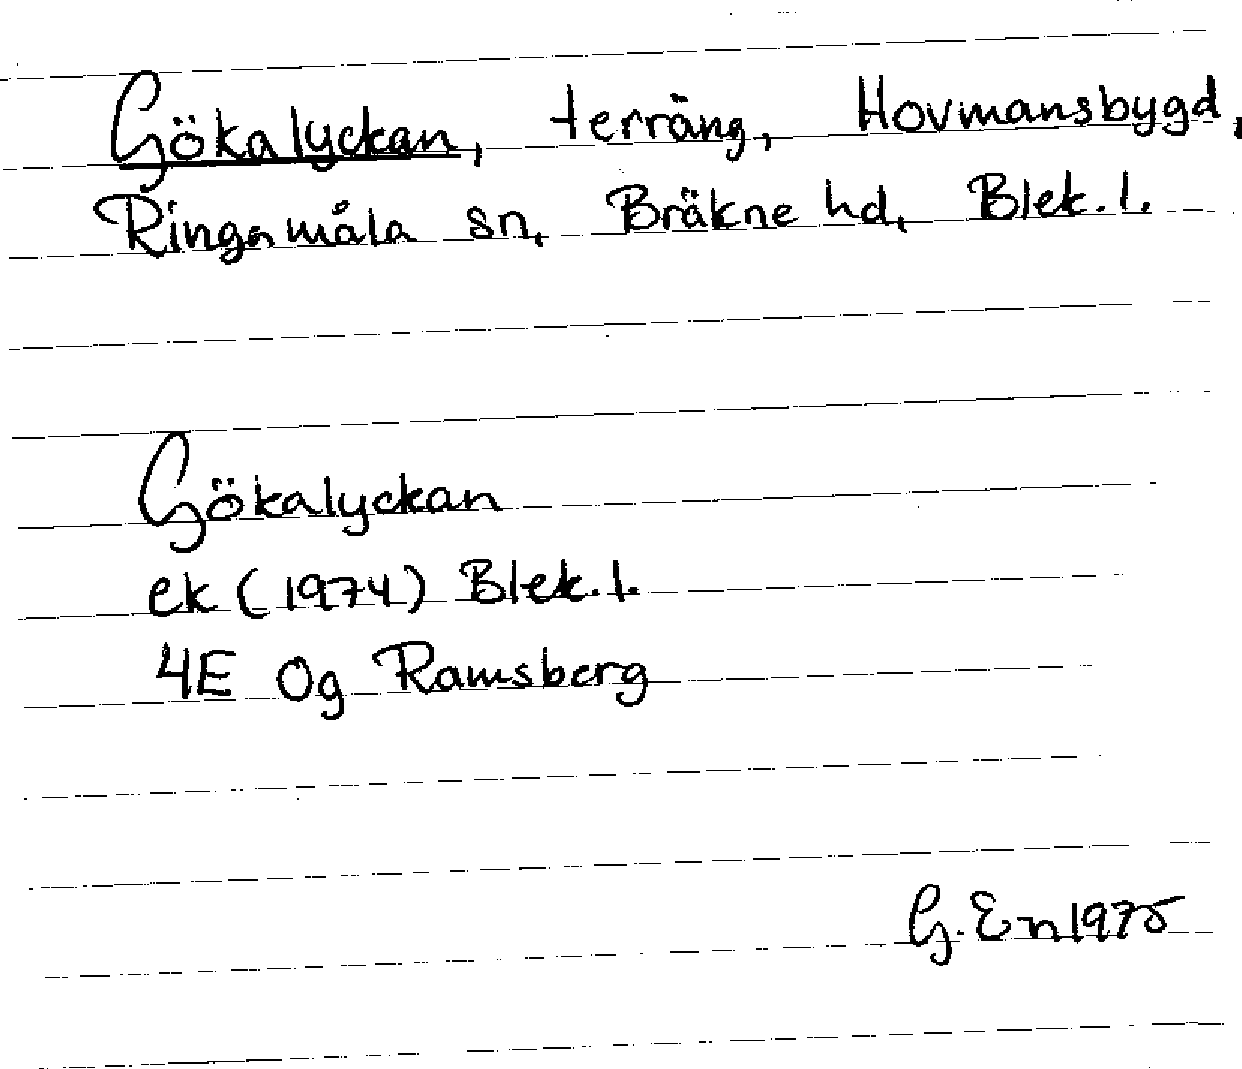 Gökalyckan, terräng, Hovmansbygd,
Ringamåla sn, Bräkne hd, Blek. l.
Gökalyckan
ek (1974) Blek. l.
4E 0g Ramsberg
G. En 1975